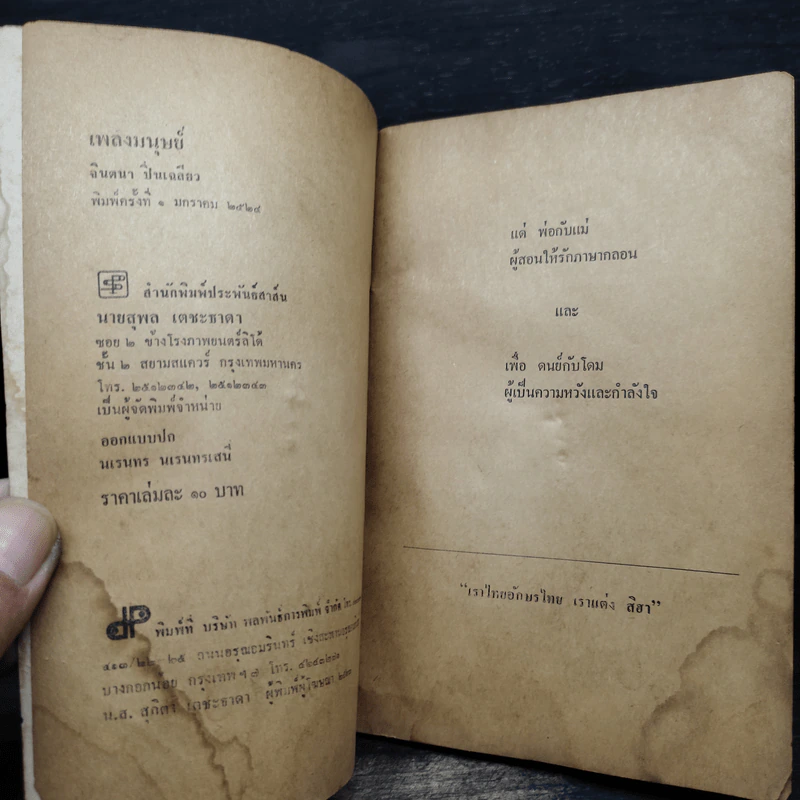 เพลงมนุษย์
จินตนา ปิ่นเฉลียว
พิมพ์ครั้งที่ ๑ มกราคม ๒๕๒๔
สำนักพิมพ์ประพันธ์สาส์น
นายสุพล เตชะธาดา
ซอย ๒ ข้างโรงภาพยนตร์ลิโด้
ชั้น ๒ สยามสแควร์ กรุงเทพมหานคร
โทร. ๒๕๑๒๓๔๒, ๒๕๑๒๓๔๓
เป็นผู้จัดพิมพ์จำหน่าย
ออกแบบปก
นเรนทร นเรนทรเสนี
ราคาเล่มละ ๑๐ บาท
พิมพ์ที่ บริษัท พลพันธ์การพิมพ์ จำกัด โทร.
๔๑๓/๒๒-๒๕ ถนนอรุณอมรินทร์
บางกอกน้อย กรุงเทพฯ ๘ โทร.
น.ส. สุกิตรา เตชะธาดา ผู้พิมพ์ผู้โฆษณา
แด่ พ่อกับแม่
ผู้สอนให้รักภาษากลอน
และ
เพื่อ ดนย์กับโดม
ผู้เป็นความหวังและกำลังใจ
"เราไทยอักษรไทย เราแต่ง สิฮา"